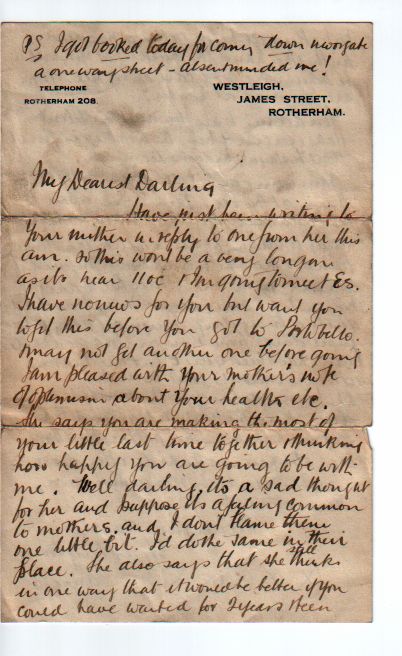 PS I got booked today for coming down Moorgate
a one way street - absentminded me!
TELEPHONE
ROTHERHAM 208.
WESTLEIGH,
JAMES STREET,
ROTHERHAM.
My Dearest Darling
Have just been writing to
Your mother in reply to one from her this
am. so this won't be a very long one
as its near 11 oc & I'm going to meet Es.
I have no news for you but want you
to get this before you got to Portobello.
& may not get another one before going
I am pleased with your mother's note
of optimism about your health etc.
She says you are making the most of
your little last time together & thinking
how happy you are going to be with
me. Well darling, its a sad thought
for her and I suppose its a failing common
to mothers, and I don't blame them
one little bit. I'd do the same in their
place. She also says that she still thinks
in one way that it would be better if you
could have waited for 2 years &